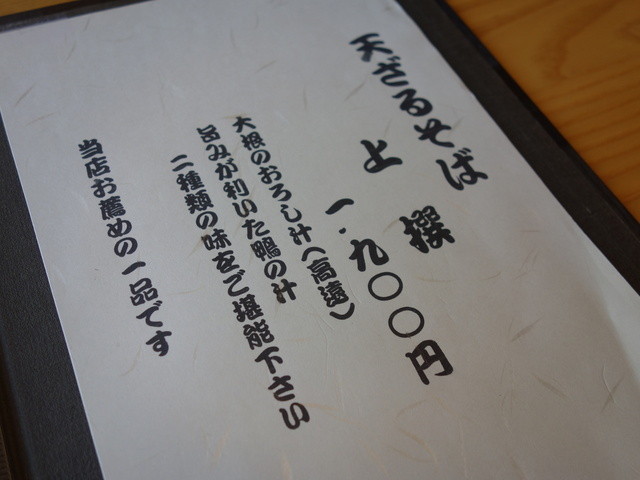 天ざるそば
上撰
一.九〇〇円
大根のおろし汁(高遠)
旨みが利いた鴨の汁
二種類の味をご堪能下さい
当店お薦めの一品です